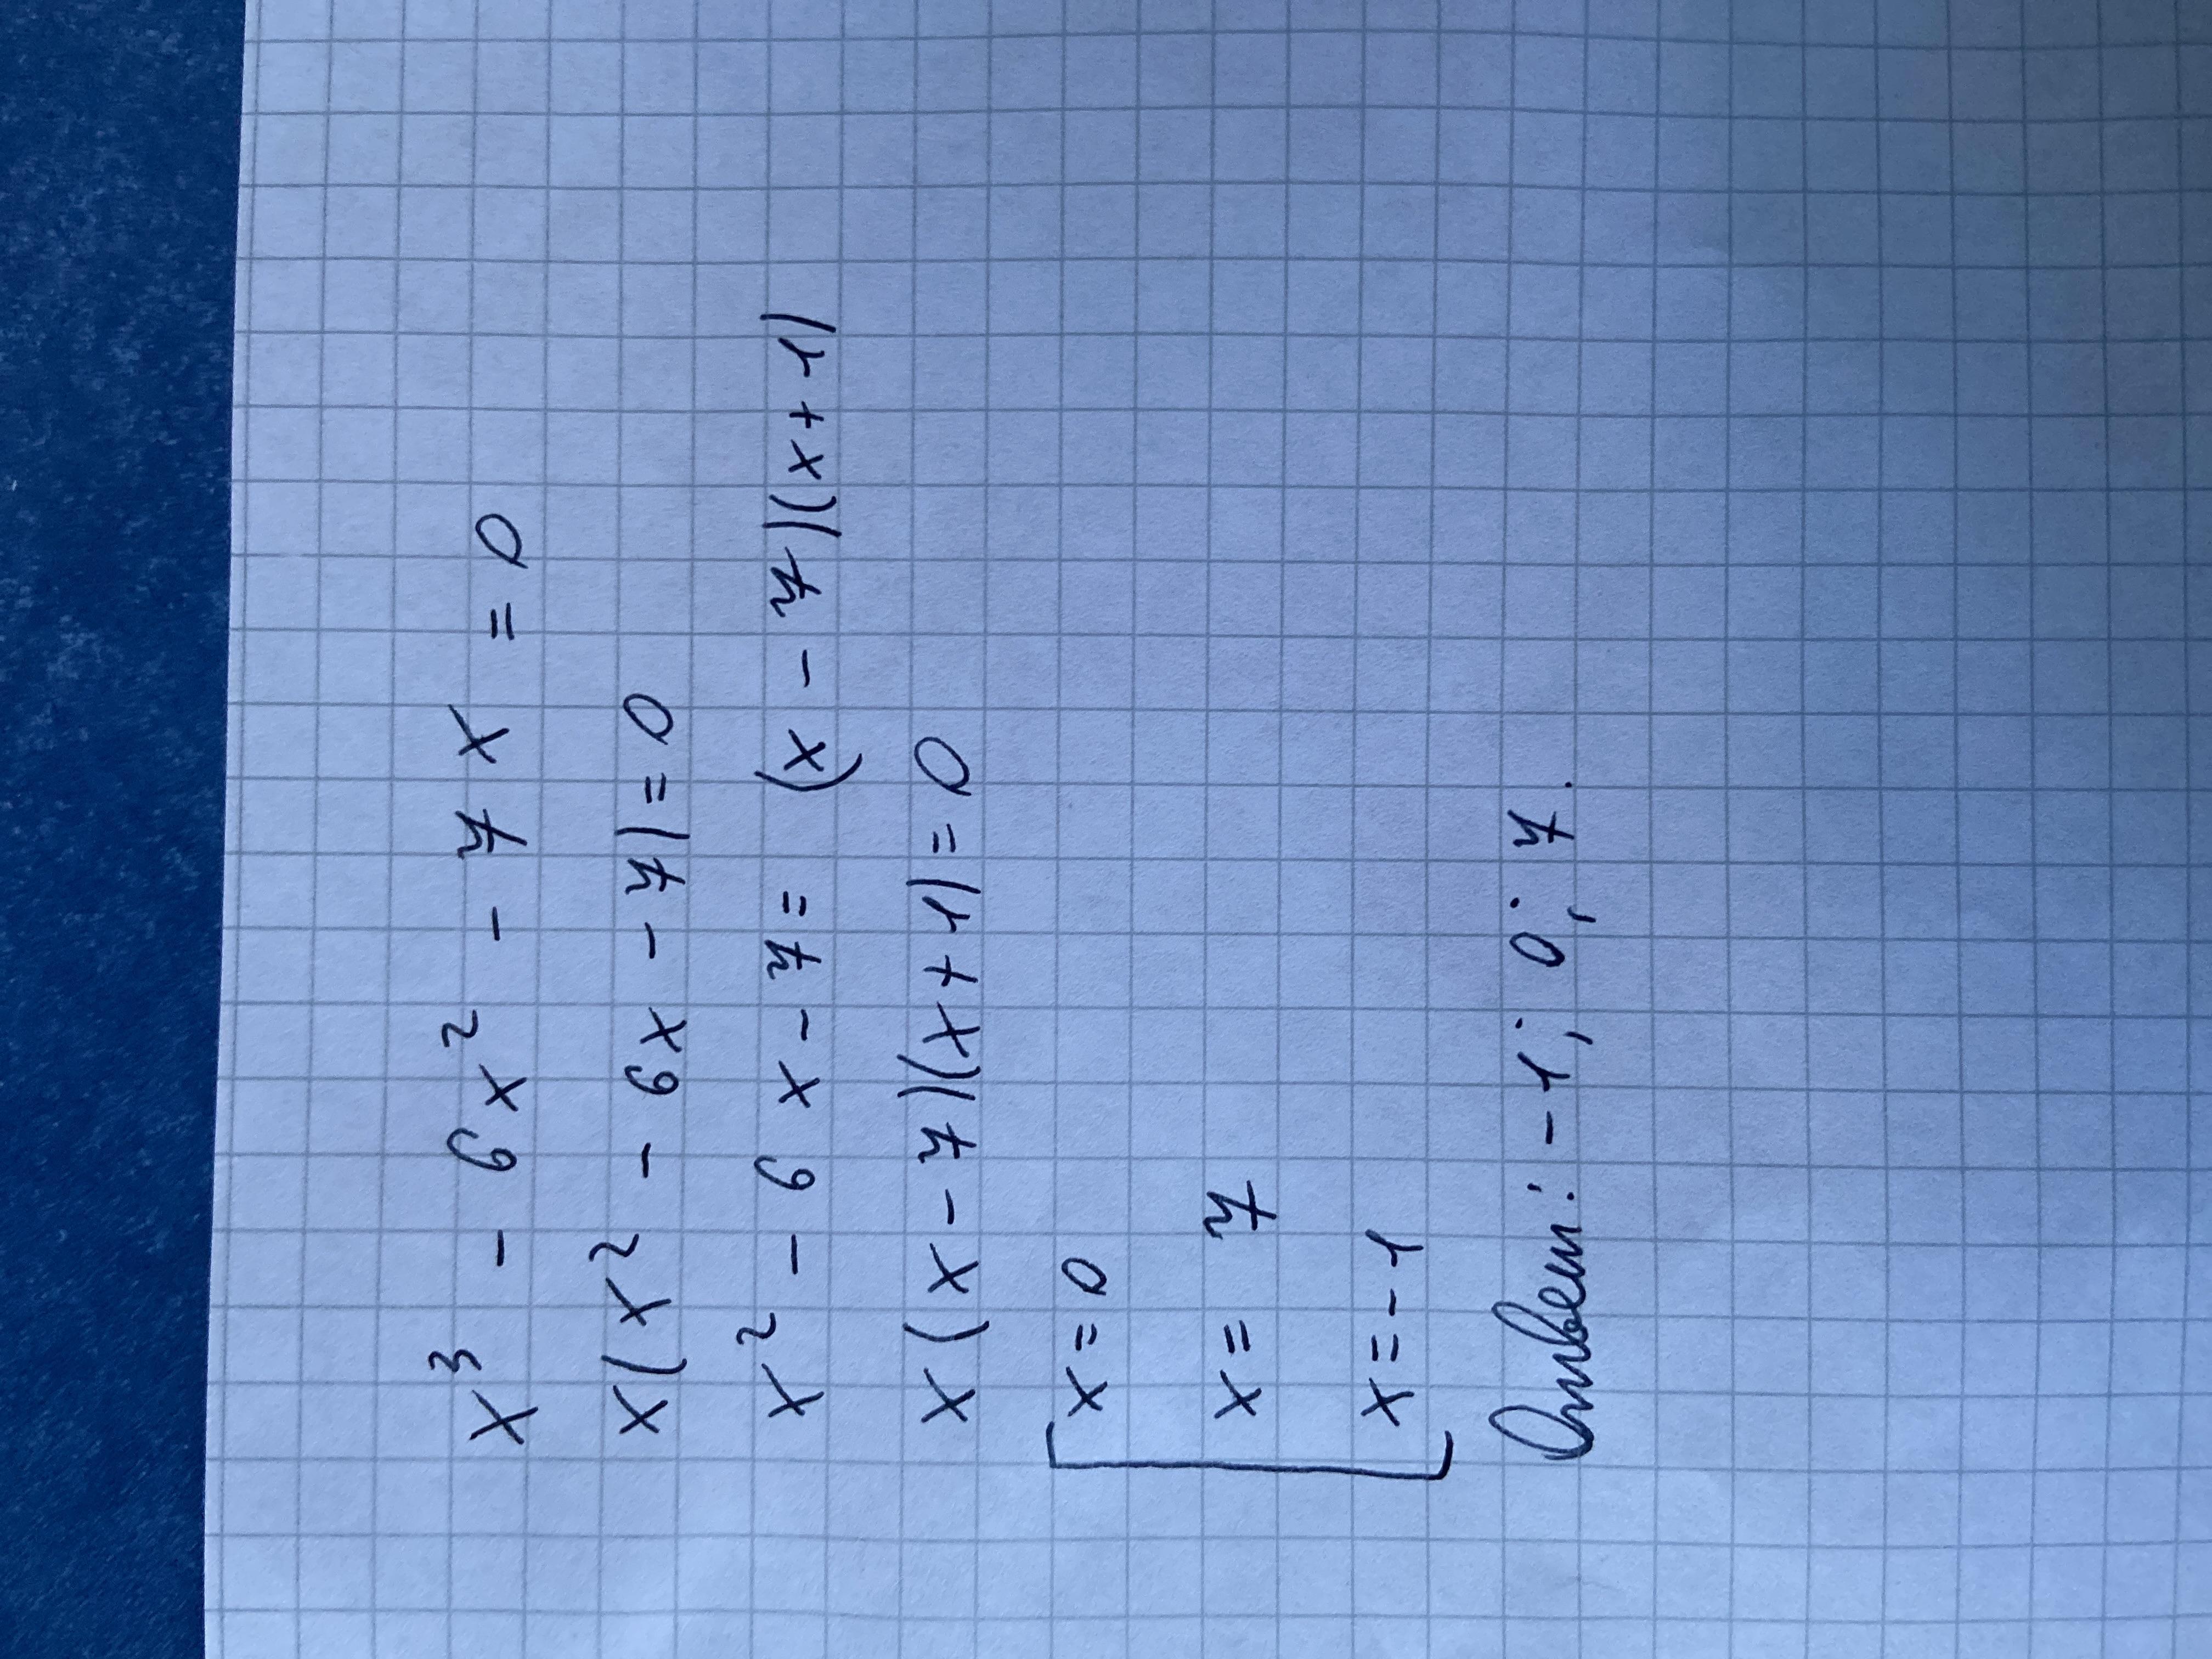 x³ - 6x² - 7x = 0
x(x² - 6x - 7) = 0
x² - 6x - 7 = (x - 7)(x + 1)
x(x - 7)(x + 1) = 0
x = 0
x = 7
x = -1
Ответ: -1; 0; 7.